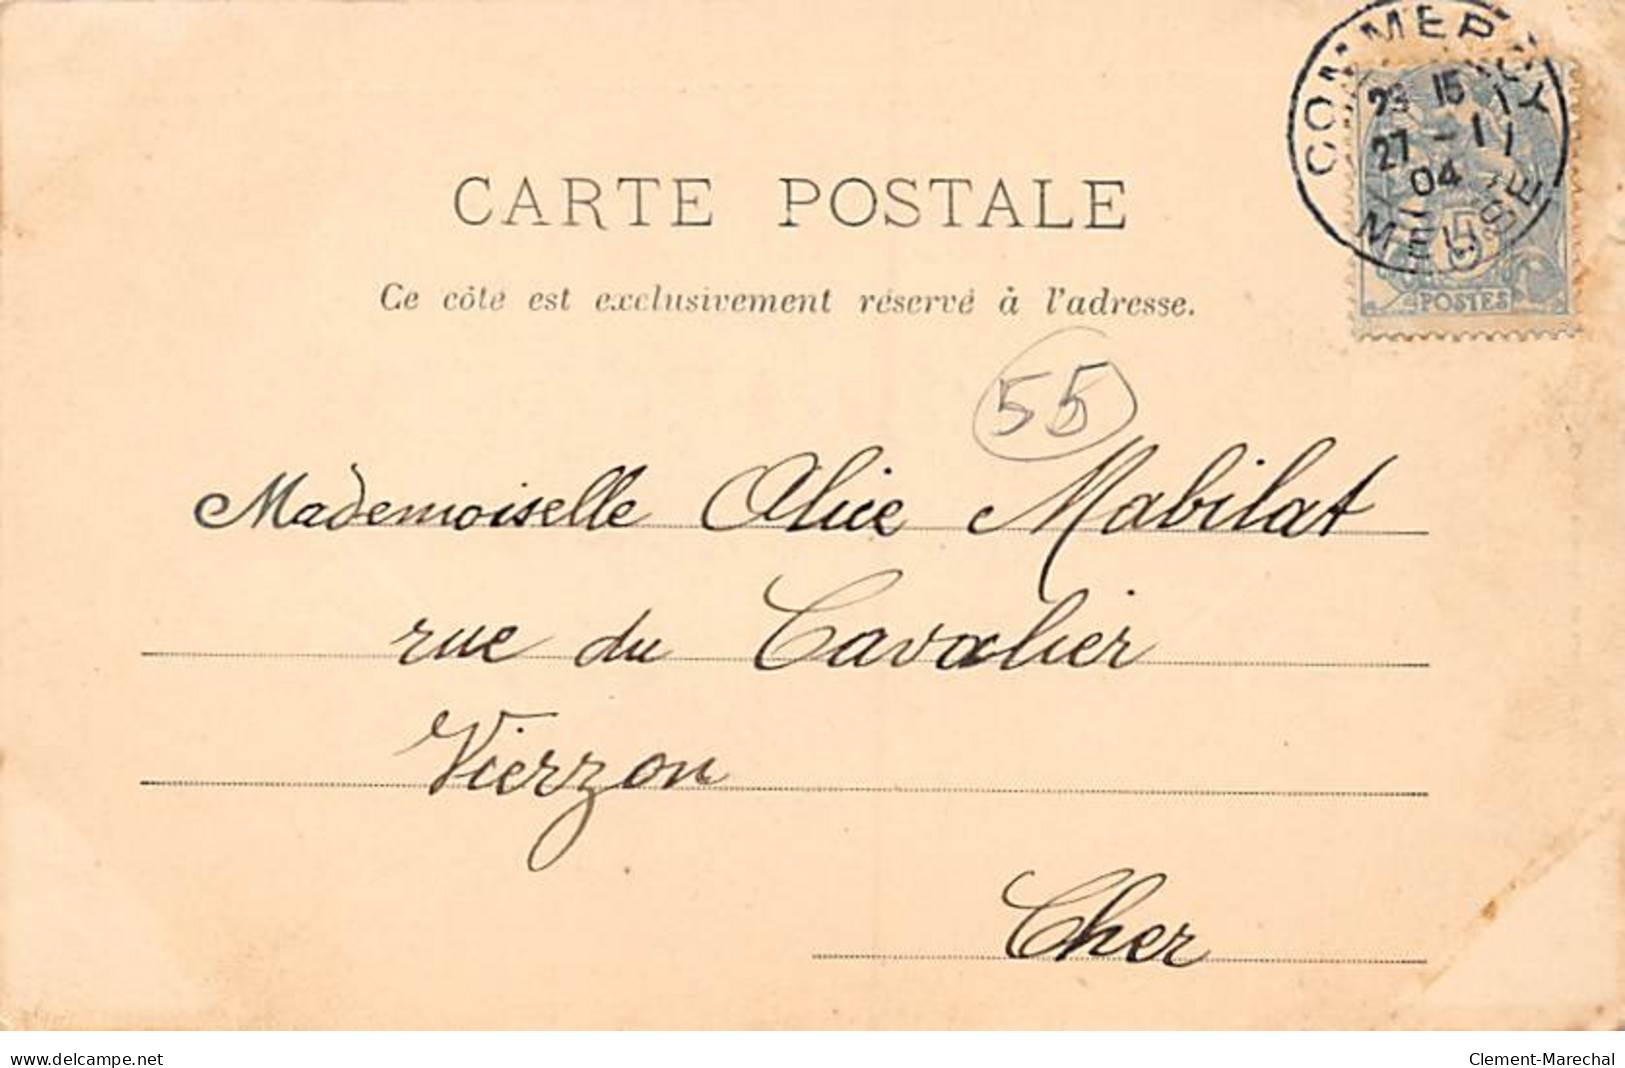 COMMERCY
23 15
27 - 1
04
MEUSE
5
POSTES
CARTE POSTALE
Ce côté est exclusivement réservé à l'adresse.
55
Mademoiselle Alice Mabilat
rue du Cavalier
Vierzon
Cher
www.delcampe.net
Clement-Marechal